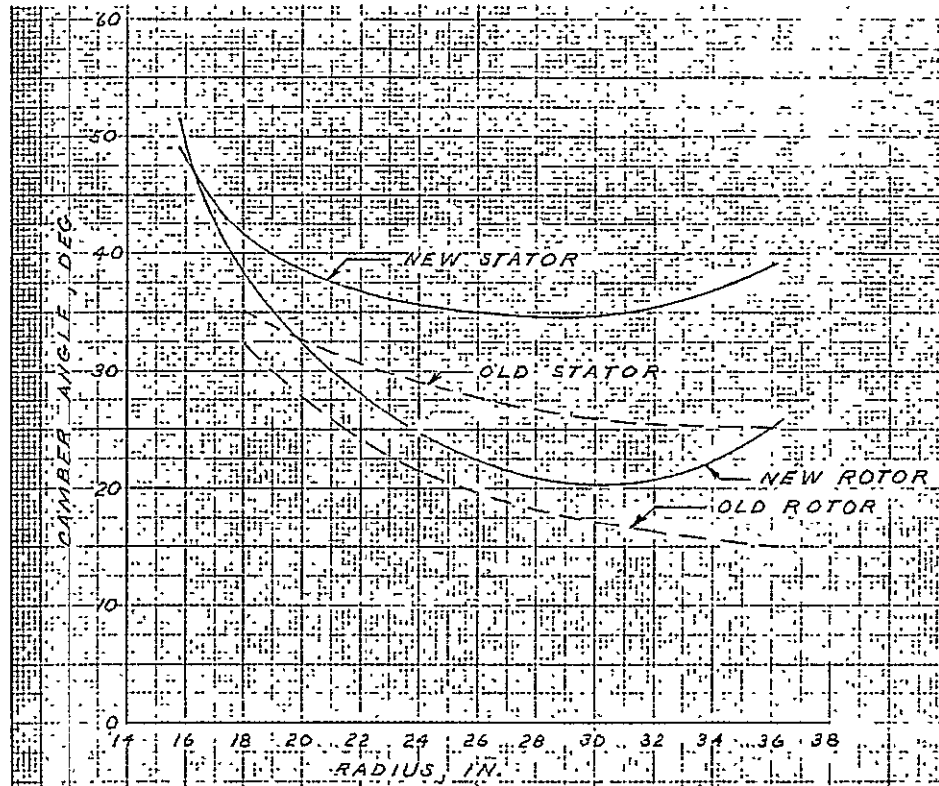 60
50
40
30
20
10
0
CAMBER ANGLE, DEG
NEW STATOR
OLD STATOR
NEW ROTOR
OLD ROTOR
14 16 18 20 22 24 26 28 30 32 34 36 38
RADIUS, IN.